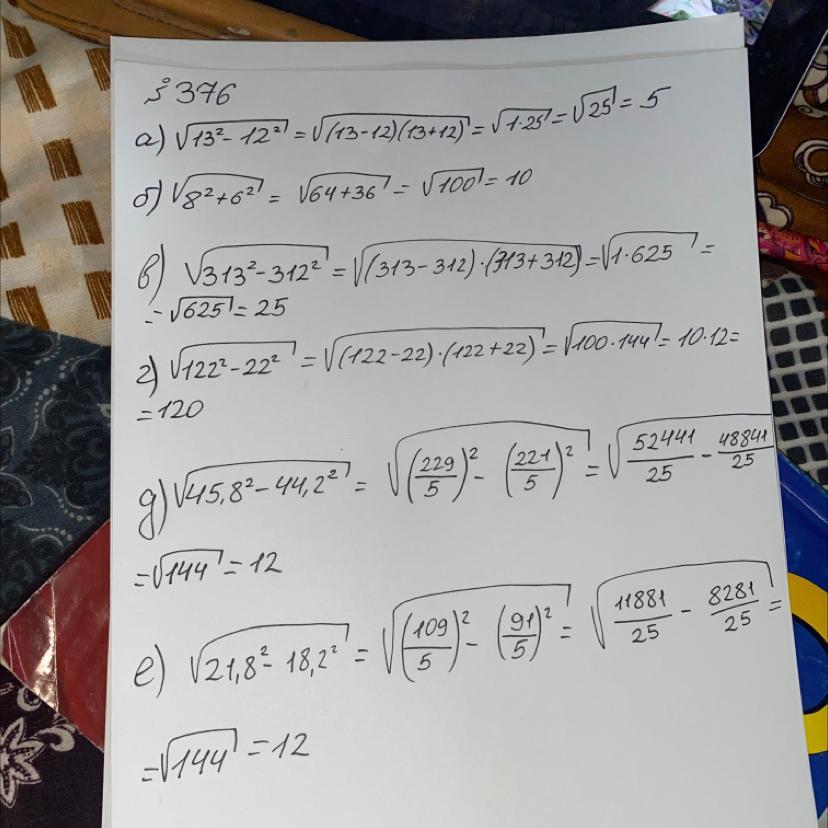 № 376
а) √(13² - 12²) = √((13-12)(13+12)) = √(1·25) = √25 = 5
б) √(8²+6²) = √(64+36) = √100 = 10
в) √(313² - 312²) = √((313-312)·(313+312)) = √(1·625) =
= √625 = 25
г) √(122² - 22²) = √((122-22)·(122+22)) = √(100·144) = 10·12 =
= 120
д) √(45,8² - 44,2²) = √((229/5)² - (221/5)²) = √(52441/25 - 48841/25)
= √144 = 12
е) √(21,8² - 18,2²) = √((109/5)² - (91/5)²) = √(11881/25 - 8281/25) =
= √144 = 12